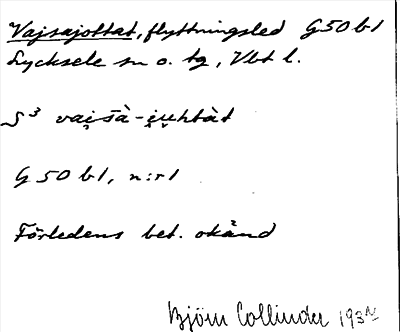 Vajsajottat, flyttningsled G 50 b 1
Lycksele sn o. tg, Vbt l.
S³ vai̯s̄à-i̯u̯htàt
G 50 b 1, n:r 1
Förledens bet. okänd
Björn Collinder 193